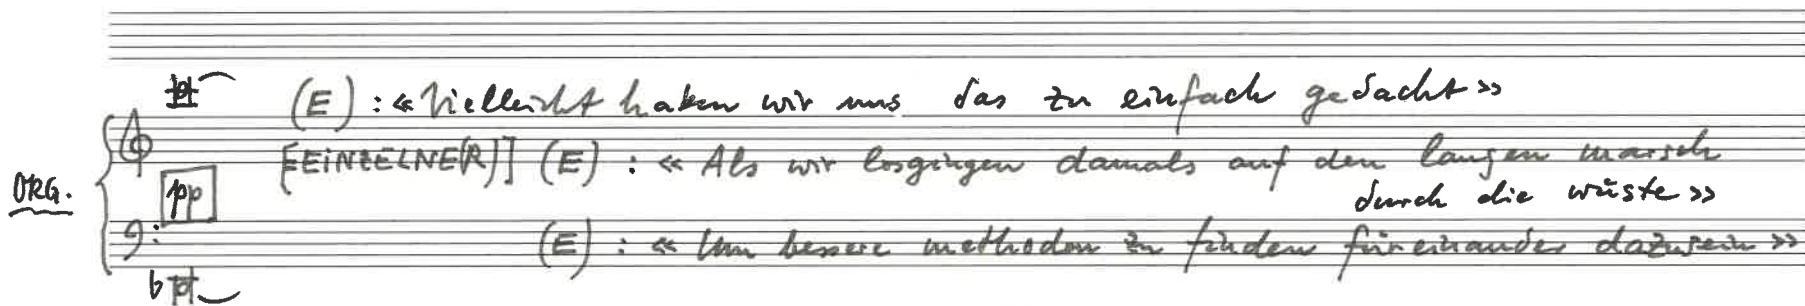 (E) : «Vielleicht haben wir uns das zu einfach gedacht»
[EINZELNE(R)] (E) : « Als wir losgingen damals auf den langen marsch
ORG. pp durch die wüste»
(E) : « Um bessere methoden zu finden füreinander dazusein »